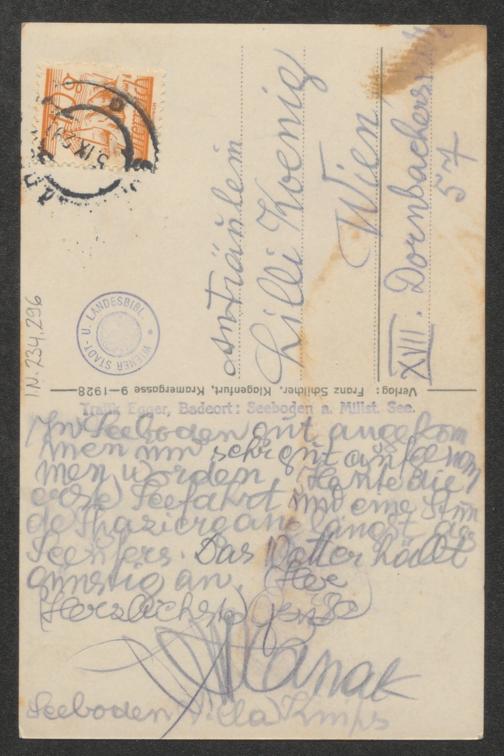 An Fräulein
Lilli Koenig
Wien
XVII. Dornbacherstr.
57
WIENER STADT- U. LANDESBIBL.
I.N. 234.296
Verlag: Franz Schilcher, Klagenfurt, Kramergasse 9—1928
Trafik Egger, Badeort: Seeboden a. Millst. See.
In Seeboden gut angekom
men und sehr gut aufgenom
men worden. Heute die
erste Seefahrt und eine Stun
de Spaziergang längst des
Seeufers. Das Wetter hällt
günstig an.
Herzlichste Grüße
Hanak
Seeboden Villa Knips